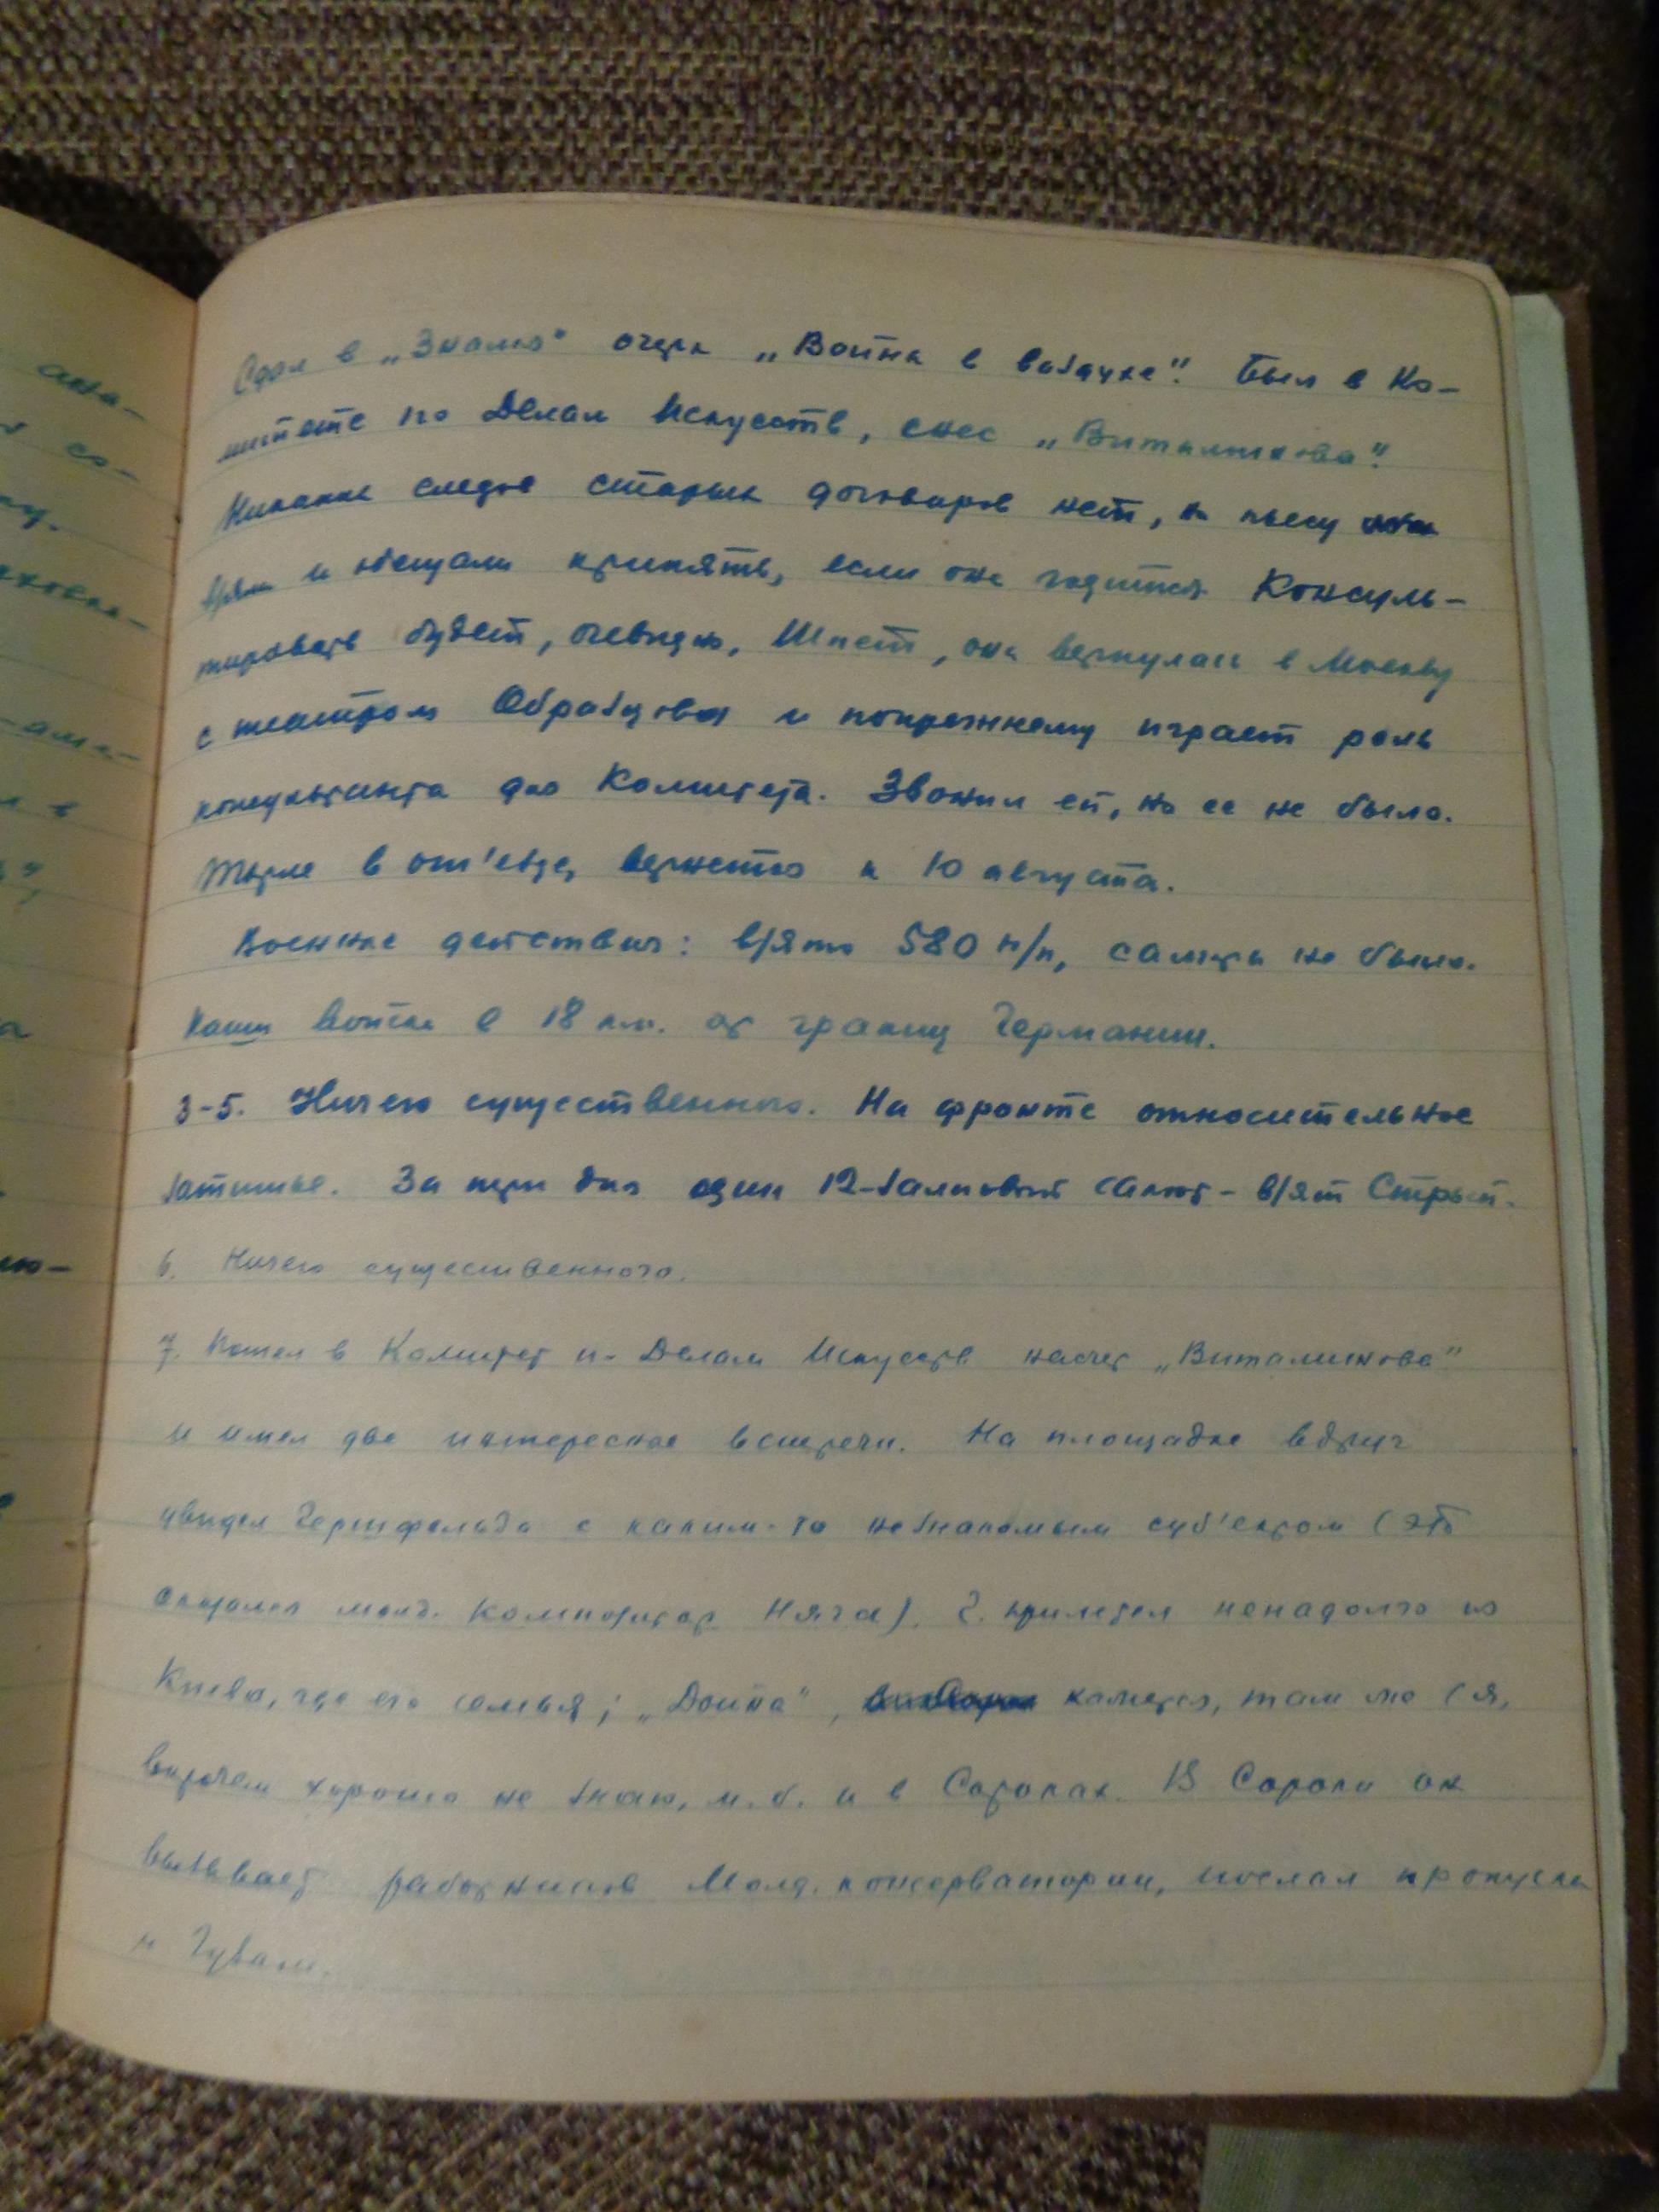 Сдал в „Знамя" очерк „Война в воздухе". Был в Ко-
митете по Делам Искусств, снес „Виталикова".
Никаких следов старых договоров нет, но пьесу
взяли и обещали принять, если она годится. Консуль-
тировать будет, очевидно, Шпет, она вернулась в Москву
с театром Образцова и попрежнему играет роль
консультанта для Комитета. Звонил ей, но ее не было.
в от'езде, вернется к 10 августа.
Военные действия: взято 580 н/п, салюта не было.
Наши войска в 18 км. от границ Германии.
3-5. Ничего существенного. На фронте относительное
затишье. За три дня один 12-залповый салют - взят Стрый.
6. Ничего существенного.
7. Пошел в Комитет по Делам Искусств насчет „Виталикова"
и имел две интересные встречи. На площадке вдруг
увидел Гершфельда с каким-то незнакомым суб'ектом (это
оказался молд. композитор Няга). Г. прилетел ненадолго из
Киева, где его семья; „Дойна", кажется, там же (я,
впрочем хорошо не знаю, м.б. и в Сороках. В Сороки он
вызывает работников Молд. консерватории, послал пропуска
и Гузали.